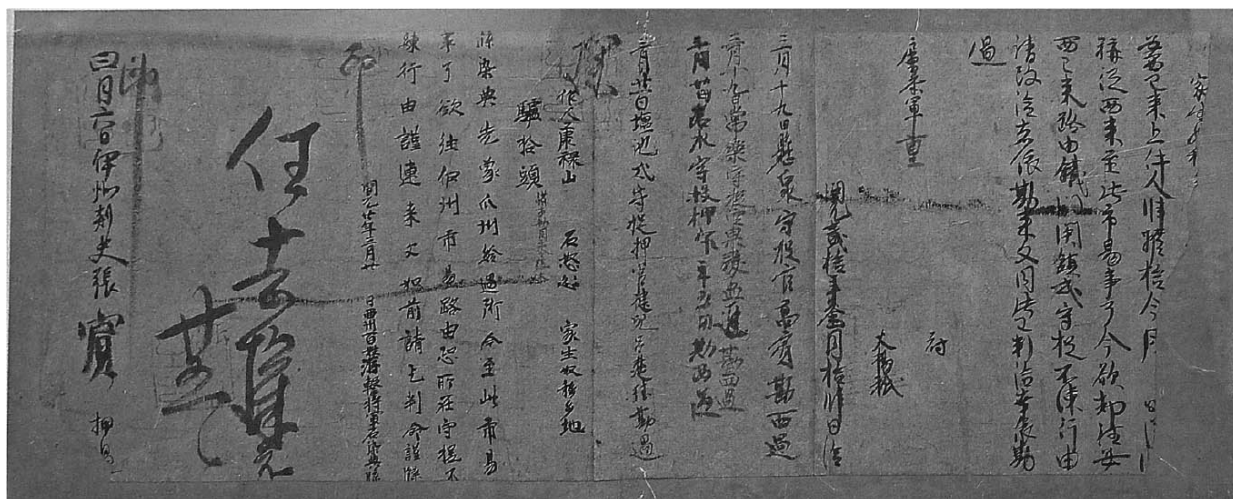 家生奴移
西已來上件人肆驢拾今月 日
稱從西來至此市易事了今欲却往安
西已來路由鐵門關鎮戍守捉不練行由
請改給者依勘來文同此已判給幸依勘
過
府
戶曹參軍亶
史楊祇
開元貳拾年叁月拾肆日給
三月十九日懸泉守捉官高賓勘西過
三月十九日常樂守捉官果毅孟進勘西過
三月廿日苦水守捉押官年五用勘西過
三月廿一日鹽池戍守捉押官健兒呂楚珪勘過
作人康祿山 石怒忿 家生奴移多地
驢拾頭 沙州市勘同市令張休
牒染典先蒙瓜州給過所今至此市易
事了欲往伊州市易路由恐所在守捉不
練行由謹連來文如前請乞判命謹牒
印
開元廿年三月廿 日西州百姓游擊將軍石染典牒
任去琛示
廿五日
印
四月六日伊州刺史張賓 押過